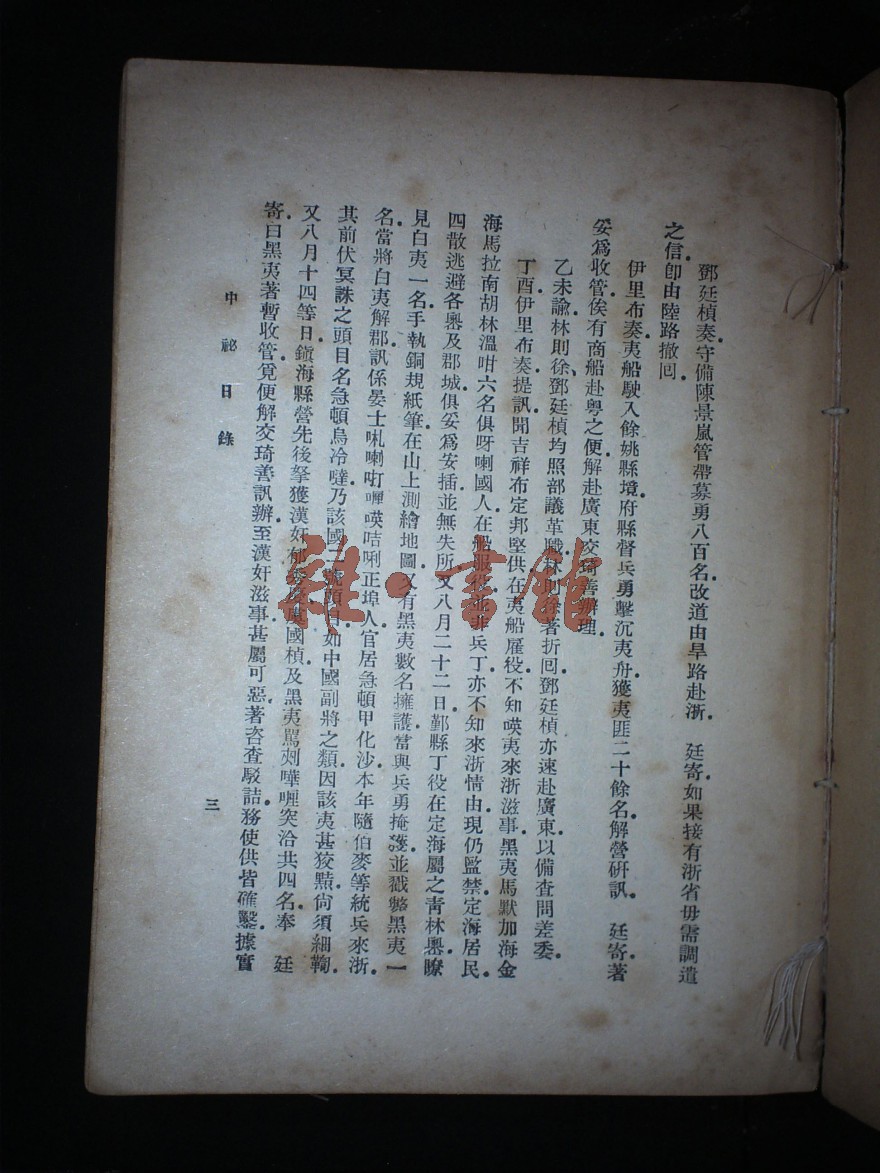 鄧廷楨奏守備陳景嵐管帶募勇八百名改道由旱路赴浙 廷寄如果接有浙省毋需調遣
之信卽由陸路撤囘
伊里布奏夷船駛入餘姚縣境府縣督兵勇擊沉夷舟獲夷匪二十餘名解營研訊 廷寄著
妥爲收管俟有商船赴粵之便解赴廣東交琦善辦理
乙未諭林則徐鄧廷楨均照部議革職林則徐著折囘鄧廷楨亦速赴廣東以備查問差委
丁酉伊里布奏提訊聞吉祥布定邦堅供在夷船雇役不知㖟夷來浙滋事黑夷馬默加海金
海馬拉南胡林溫咁六名俱呀喇國人在船服役並非兵丁亦不知來浙情由現仍監禁定海居民
四散逃避各嶴及郡城俱妥爲安插並無失所又八月二十二日鄞縣丁役在定海屬之靑林嶴瞭
見白夷一名手執銅規紙筆在山上測繪地圖又有黑夷數名擁護當與兵勇掩護並戳斃黑夷一
名當將白夷解郡訊係晏士叱喇叮㖟咭唎正埠人官居急頓甲化沙本年隨伯麥等統兵來浙
其前伏冥誅之頭目名急頓烏冷噠乃該國二號頭目如中國副將之類因該夷甚狡黠尙須細鞫
又八月十四等日鎭海縣營先後拏獲漢奸郁國楨及黑夷罵剡嘩喱突洽共四名奉 廷
寄曰黑夷著暫收管覓便解交琦善訊辦至漢奸滋事甚屬可惡著咨查駁詰務使供皆確鑿據實
中祕日錄
三
雜·書館